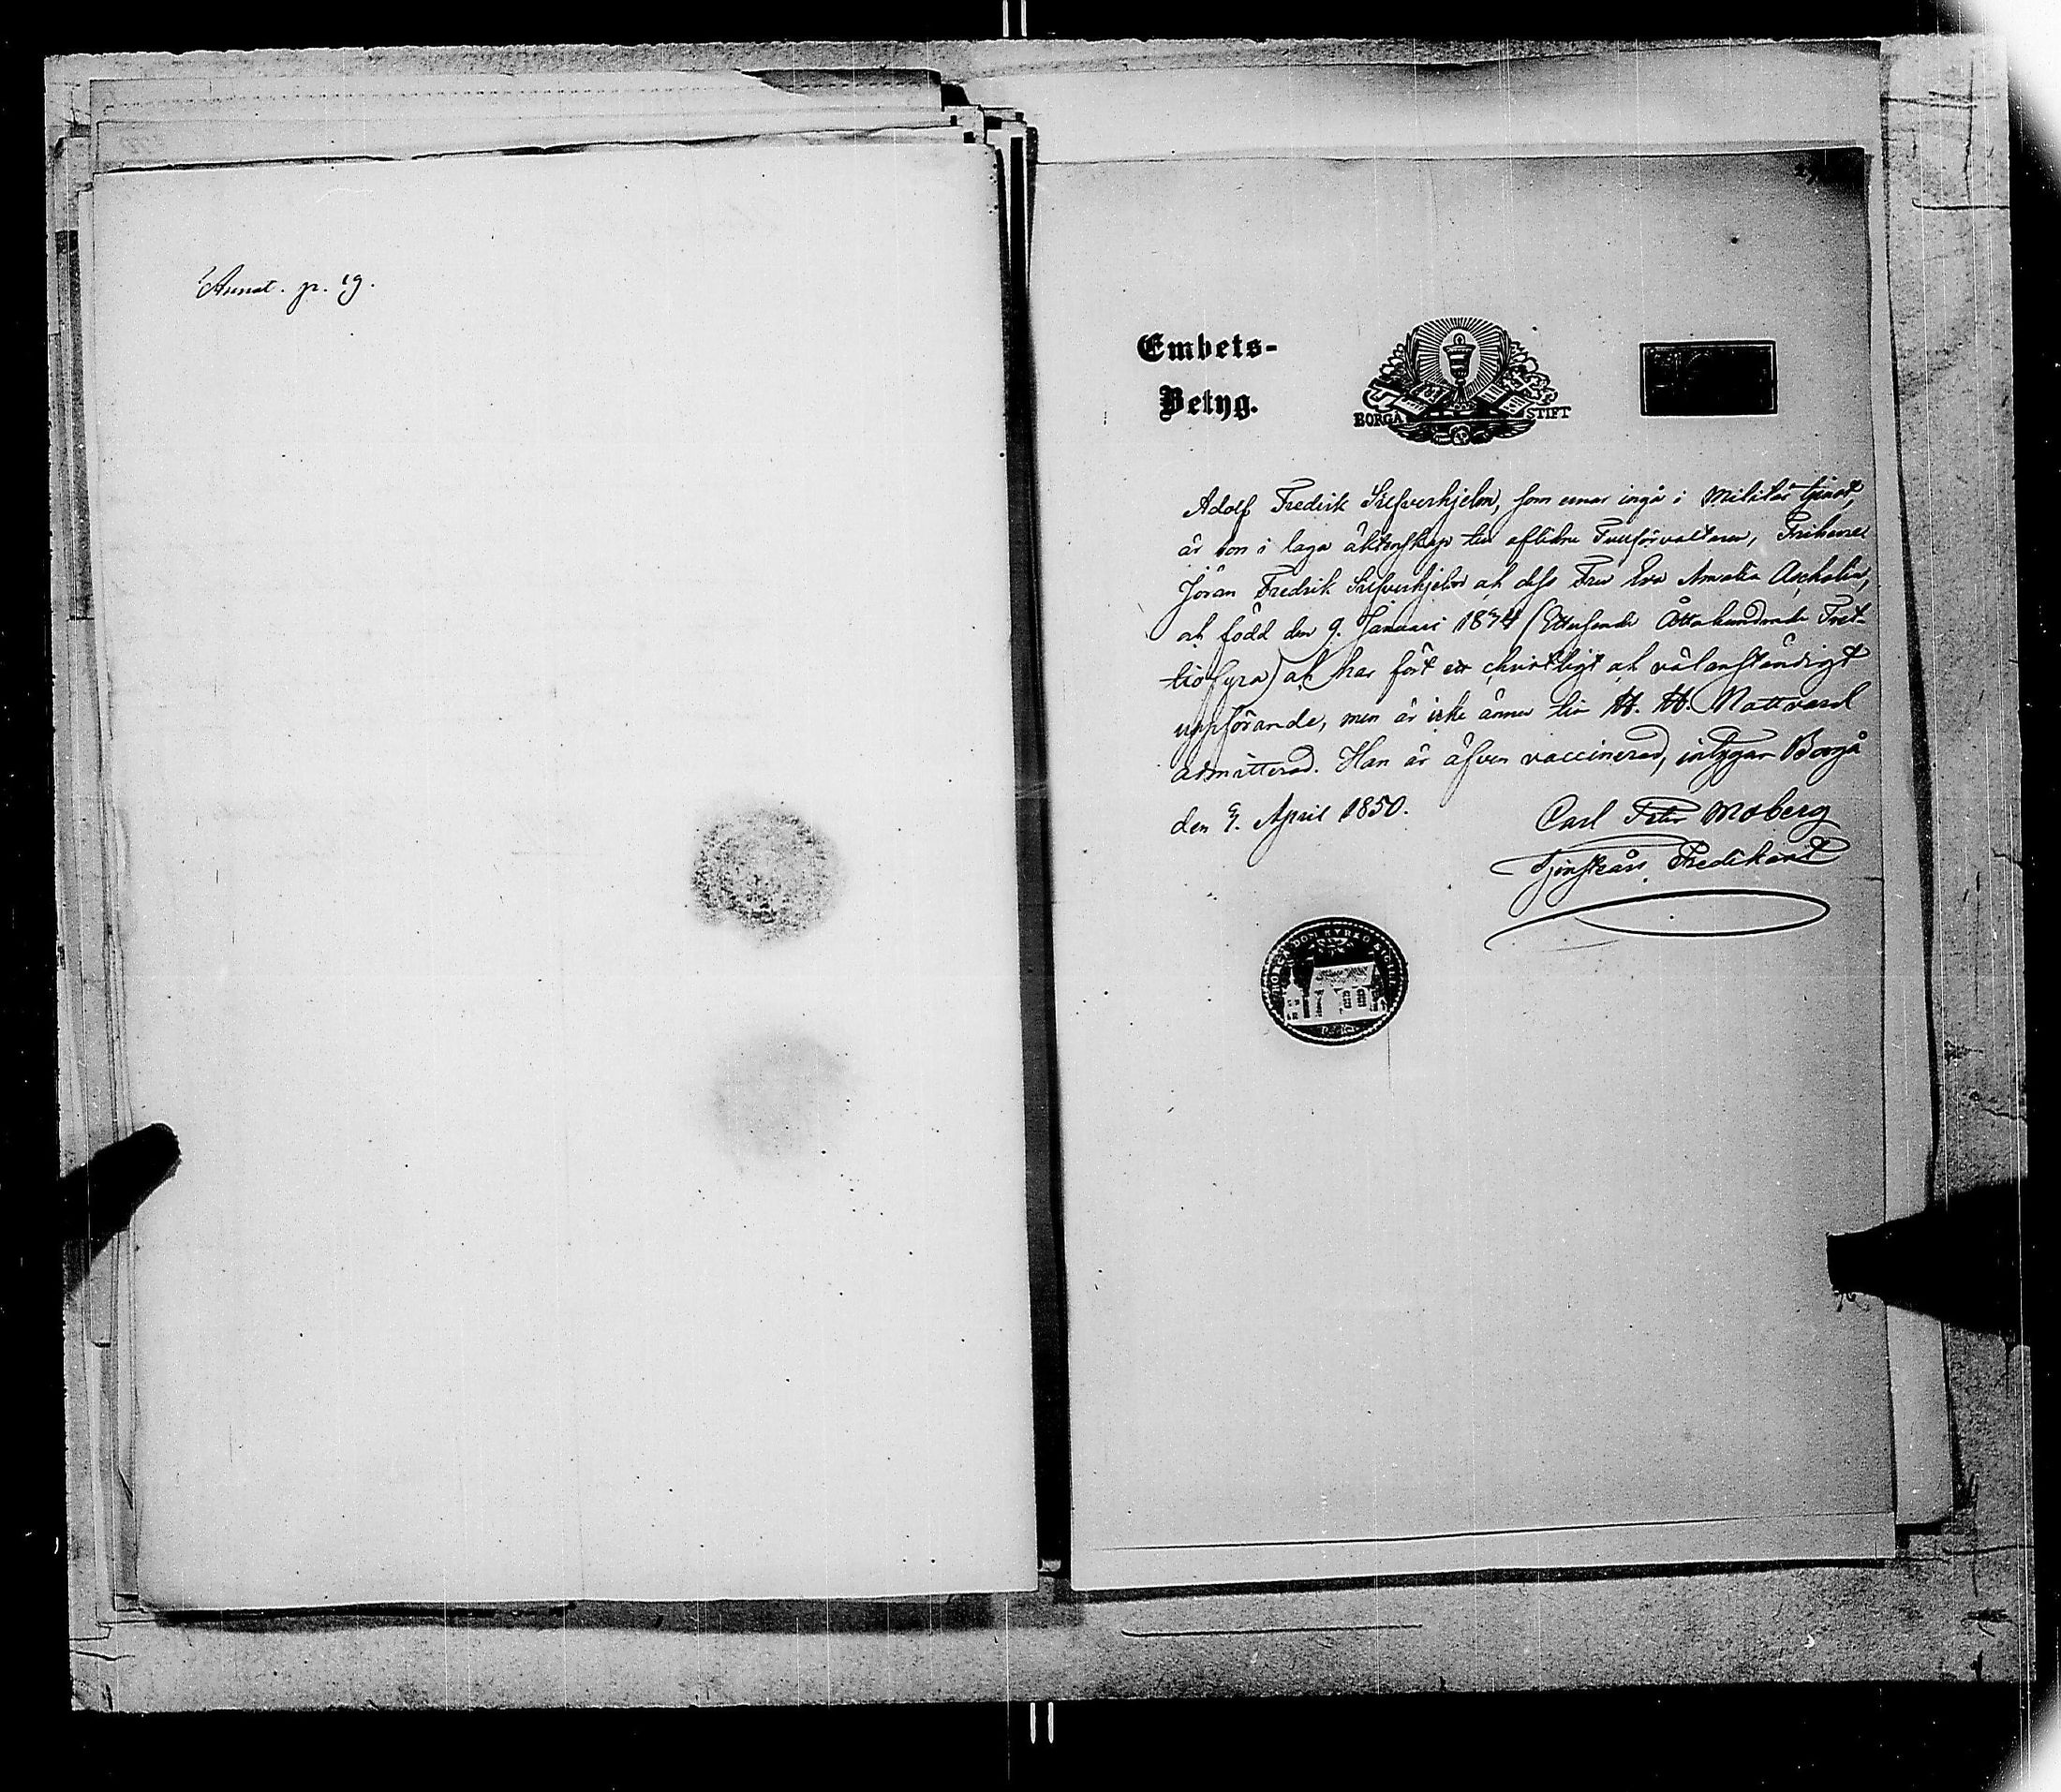 Annot. p. 19.
Embets-
Betyg.
BORGÅ STIFT
Adolf Fredrik Silfverhjelm, som ernar ingå i Militär tjenst,
är son i laga äktenskap till aflidne Tullförvaltaren, Friherre
Jöran Fredrik Silfverhjelm och dess Fru Eva Amalia Ascholin,
och född den 9. Januari 1834 (Ettusende Åttahundrade Tret-
tiofyra) och har fört ett christligt och välanständigt
uppförande, men är icke ännu till H. H. Nattvard
admitterad. Han är äfven vaccinerad, intygar Borgå
den 9. April 1850.
Carl Peter Moberg
Tjenstgörs. Predikant
DOM KYRKO SIGILL